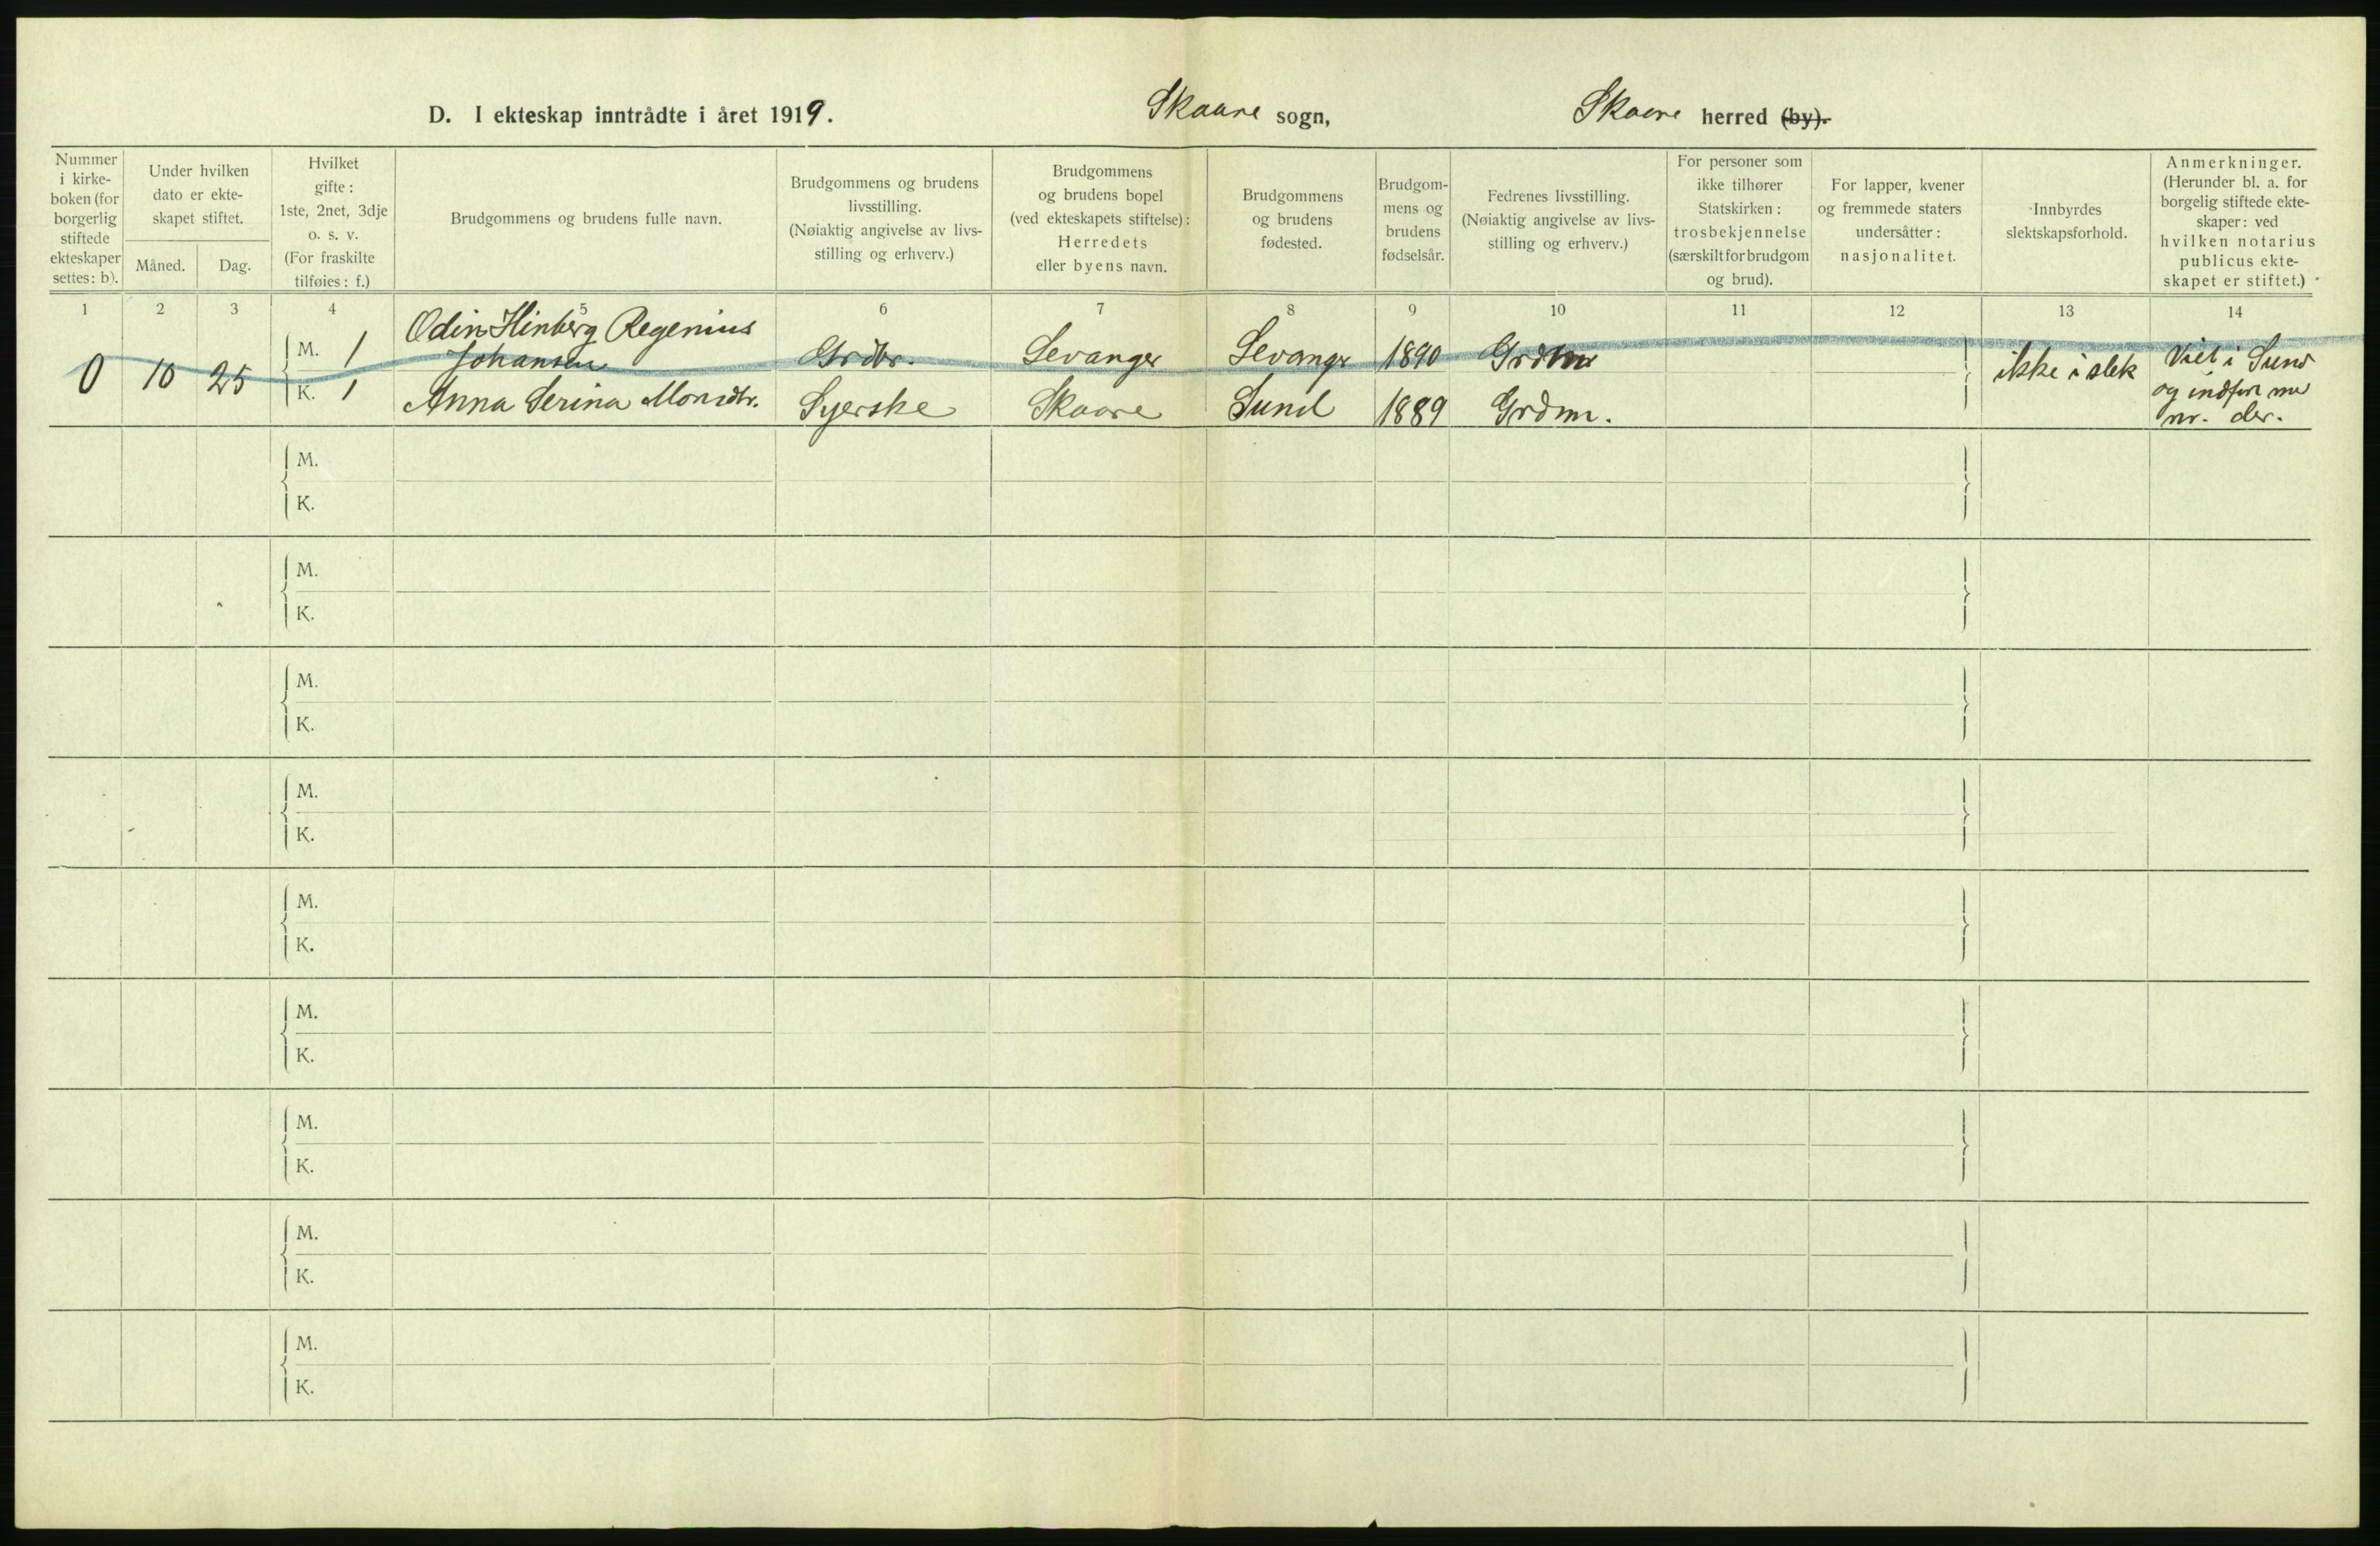 D. I ekteskap inntrådte i året 1919. Skaare sogn, Skaare herred (by).
Nummer
i kirke-
boken (for
borgerlig
stiftede
ekteskaper
settes: b).
Under hvilken
dato er ekte-
skapet stiftet.
Måned. Dag.
Hvilket
gifte:
1ste, 2net, 3dje
o. s. v.
(For fraskilte
tilføies: f.)
Brudgommens og brudens fulle navn.
Brudgommens og brudens
livsstilling.
(Nøiaktig angivelse av livs-
stilling og erhverv.)
Brudgommens
og brudens bopel
(ved ekteskapets stiftelse):
Herredets
eller byens navn.
Brudgommens
og brudens
fødested.
Brudgom-
mens og
brudens
fødselsår.
Fedrenes livsstilling.
(Nøiaktig angivelse av livs-
stilling og erhverv.)
For personer som
ikke tilhører
Statskirken:
trosbekjennelse
(særskilt for brudgom
og brud).
For lapper, kvener
og fremmede staters
undersåtter:
nasjonalitet.
Innbyrdes
slektskapsforhold.
Anmerkninger.
(Herunder bl. a. for
borgelig stiftede ekte-
skaper: ved
hvilken notarius
publicus ekte-
skapet er stiftet.)
1 2 3 4 5 6 7 8 9 10 11 12 13 14
0 10 25
M. 1 Odin Hinberg Regenius
Johansen Grdbr. Levanger Levanger 1890 Grdmr
K. 1 Anna Serina Monsdtr. Syerske Skaare Sund 1889 Grdm.
ikke i slek
Viet i Sund
og indført med
nr. der.
M.
K.
M.
K.
M.
K.
M.
K.
M.
K.
M.
K.
M.
K.
M.
K.
M.
K.